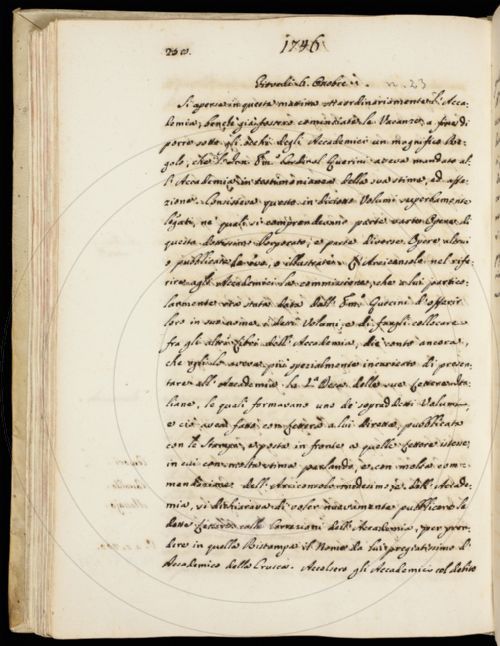 1746
Giovedì 6. Ottobre
n. 23
Si aperse in questa mattina straordinariamente l'Acca-
demia, benchè già fossero cominciate le Vacanze, a fine di
porre sotto gli occhi degli Accademici un magnifico Re-
galo, che Em.º Cardinal Querini aveva mandato al-
l'Accademia in testimonianza della sua stima, ed affe-
zione. Consisteva questo in diciotto Volumi superbamente
legati, ne' quali si comprendevano parte varie Opere di
questo dottissimo Porporato, e parte diverse Opere altrui
o pubblicate da esso, o illustrate. L'Arciconsolo nel rife-
rire agli Accademici la commissione, che a lui partico-
larmente era stata data dall' Em.º Querini d'offerir
loro in suo nome i detti Volumi, e di fargli collocare
fra gli altri Libri dell'Accademia, diè conto ancora,
che egli lo aveva più spezialmente incaricato di presen-
tare all'Accademia la Deca delle sue Lettere Ita-
liane, le quali formavano uno de' sopraddetti Volumi,
e ciò avea fatto con Lettera a lui diretta, pubblicata
con le Stampe, e posta in fronte a quelle Lettere istesse,
in cui con molta stima parlando, e con molta com-
mendazione dell'Arciconsolo medesimo, e dell'Accade-
mia, si dichiarava di voler nuovamente pubblicare le
dette Lettere colle Correzioni dell'Accademia, per pren-
dere in quella Ristampa il Nome da lui pregiatissimo d'
Accademico della Crusca. Accolsero gli Accademici col debito